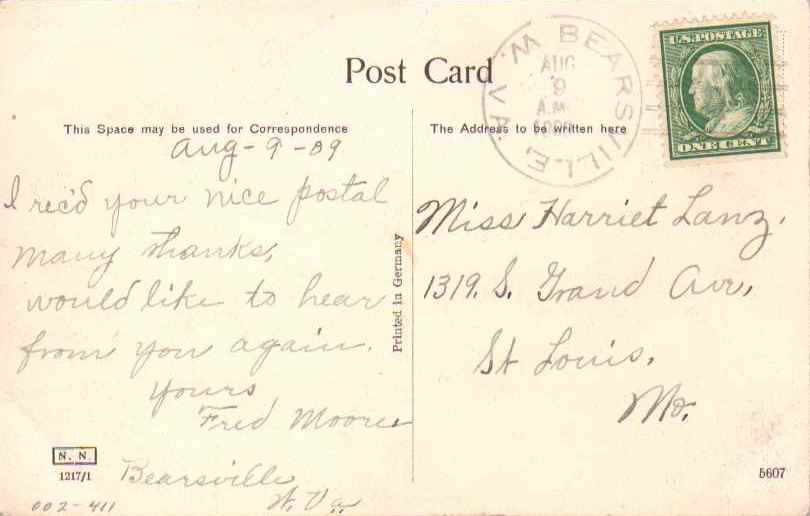 Post Card
BEARSVILLE, W. VA.
AUG
9
A.M.
1909
U.S. POSTAGE
ONE CENT
This Space may be used for Correspondence
The Address to be written here
Aug - 9 - 09
I rec'd your nice postal
many thanks,
would like to hear
from you again.
Yours
Fred Moore
Bearsville
W. Va
Printed in Germany
Miss Harriet Lanz.
1319. S. Grand Ave,
St Louis,
Mo.
N. N.
1217/1
002-411
5607